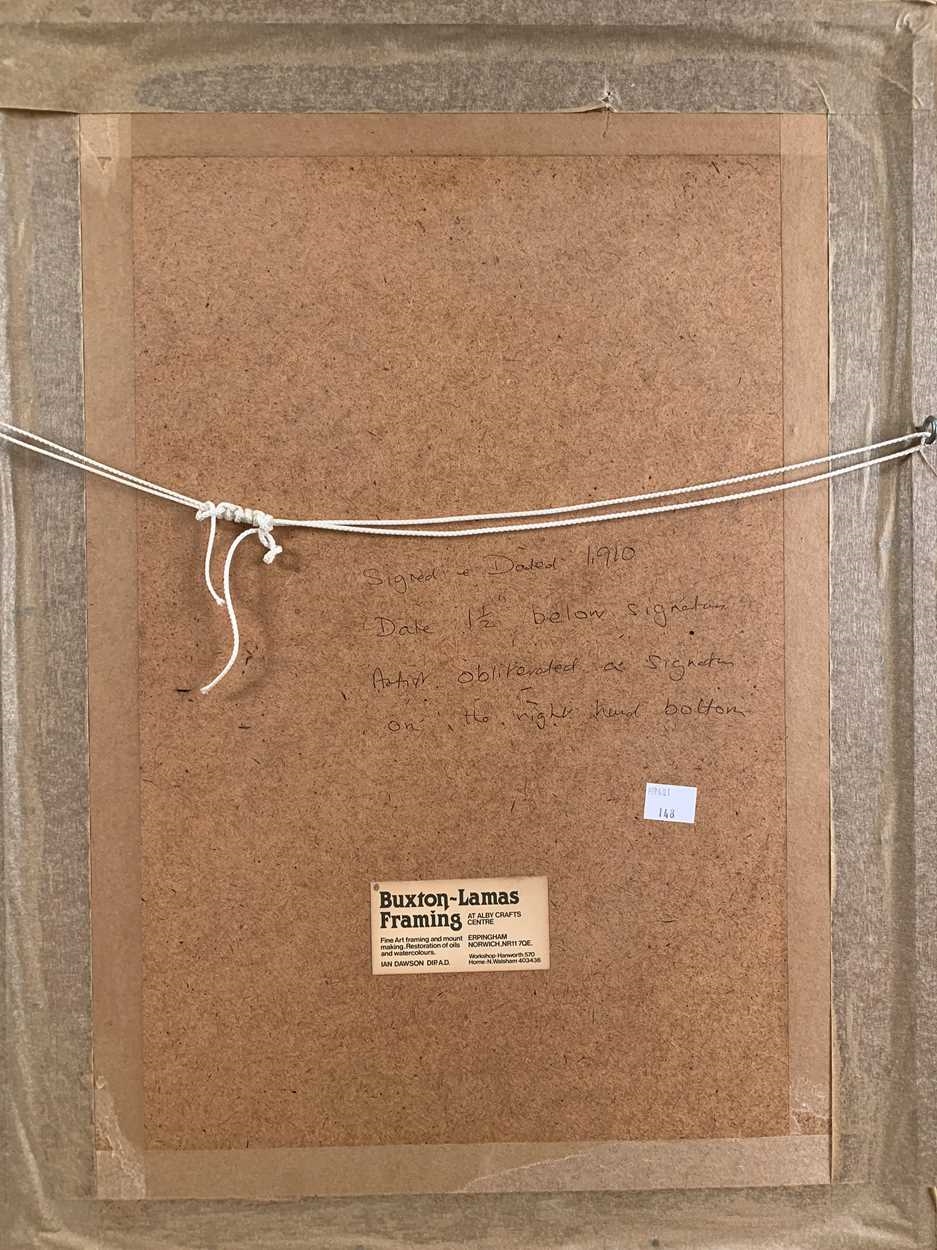 Signed & Dated 1910
Date 1½" below signature
Artist obliterated a signature
on the right hand bottom
148
Buxton-Lamas
Framing AT ALBY CRAFTS CENTRE
Fine Art framing and mount making. Restoration of oils and watercolours.
IAN DAWSON DIP.A.D.
ERPINGHAM
NORWICH, NR11 7QE.
Workshop-Hanworth 570
Home-N.Walsham 403436